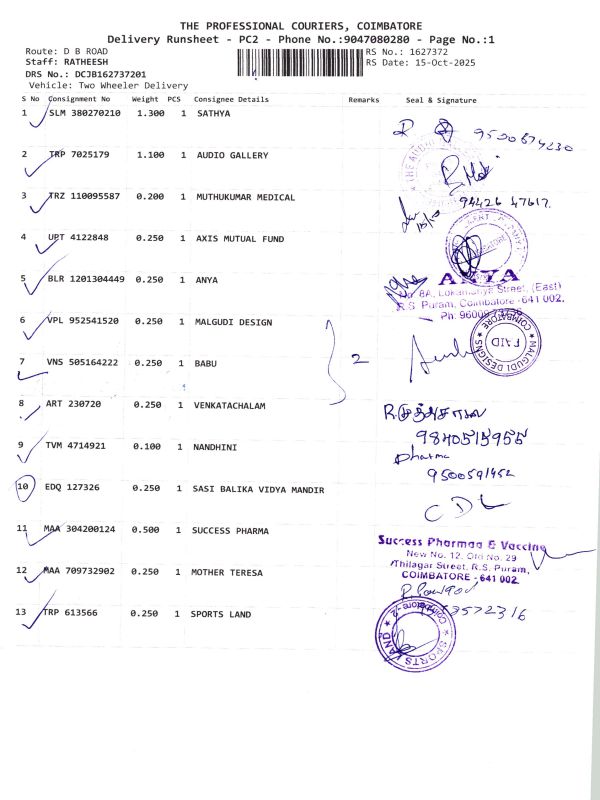 THE PROFESSIONAL COURIERS, COIMBATORE
Delivery Runsheet - PC2 - Phone No.:9047080280 - Page No.:1
Route: D B ROAD RS No.: 1627372
Staff: RATHEESH RS Date: 15-Oct-2025
DRS No.: DCJB162737201
Vehicle: Two Wheeler Delivery
S No Consignment No Weight PCS Consignee Details Remarks Seal & Signature
1 SLM 380270210 1.300 1 SATHYA
2 TRP 7025179 1.100 1 AUDIO GALLERY
3 TRZ 110095587 0.200 1 MUTHUKUMAR MEDICAL 94426 47617.
4 UPT 4122848 0.250 1 AXIS MUTUAL FUND
5 BLR 1201304449 0.250 1 ANYA
ANYA
8A, Lokamanya Street, (East)
R.S. Puram, Coimbatore - 641 002.
6 VPL 952541520 0.250 1 MALGUDI DESIGN
MALGUDI DESIGN COIMBATORE PAID
7 VNS 505164222 0.250 1 BABU 2
8 ART 230720 0.250 1 VENKATACHALAM
9840515955
9 TVM 4714921 0.100 1 NANDHINI
Dharma
9500591452
10 EDQ 127326 0.250 1 SASI BALIKA VIDYA MANDIR
11 MAA 304200124 0.500 1 SUCCESS PHARMA
Success Pharmaa & Vaccine
New No. 12, Old No. 29
Thilagar Street, R.S. Puram,
COIMBATORE - 641 002.
12 MAA 709732902 0.250 1 MOTHER TERESA
13 TRP 613566 0.250 1 SPORTS LAND
SPORTS LAND Coimbatore-2